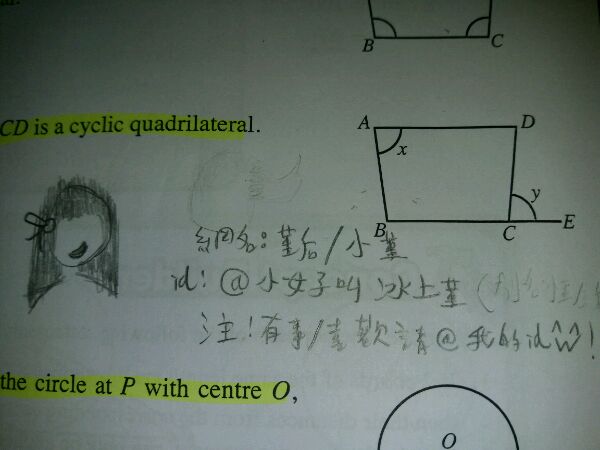 B C
CD is a cyclic quadrilateral.
A D
x
y
B C E
名:堇后/小堇
id:@小女子叫冰上堇
注!有事/喜歡請@我的id^w^!
the circle at P with centre O,
O